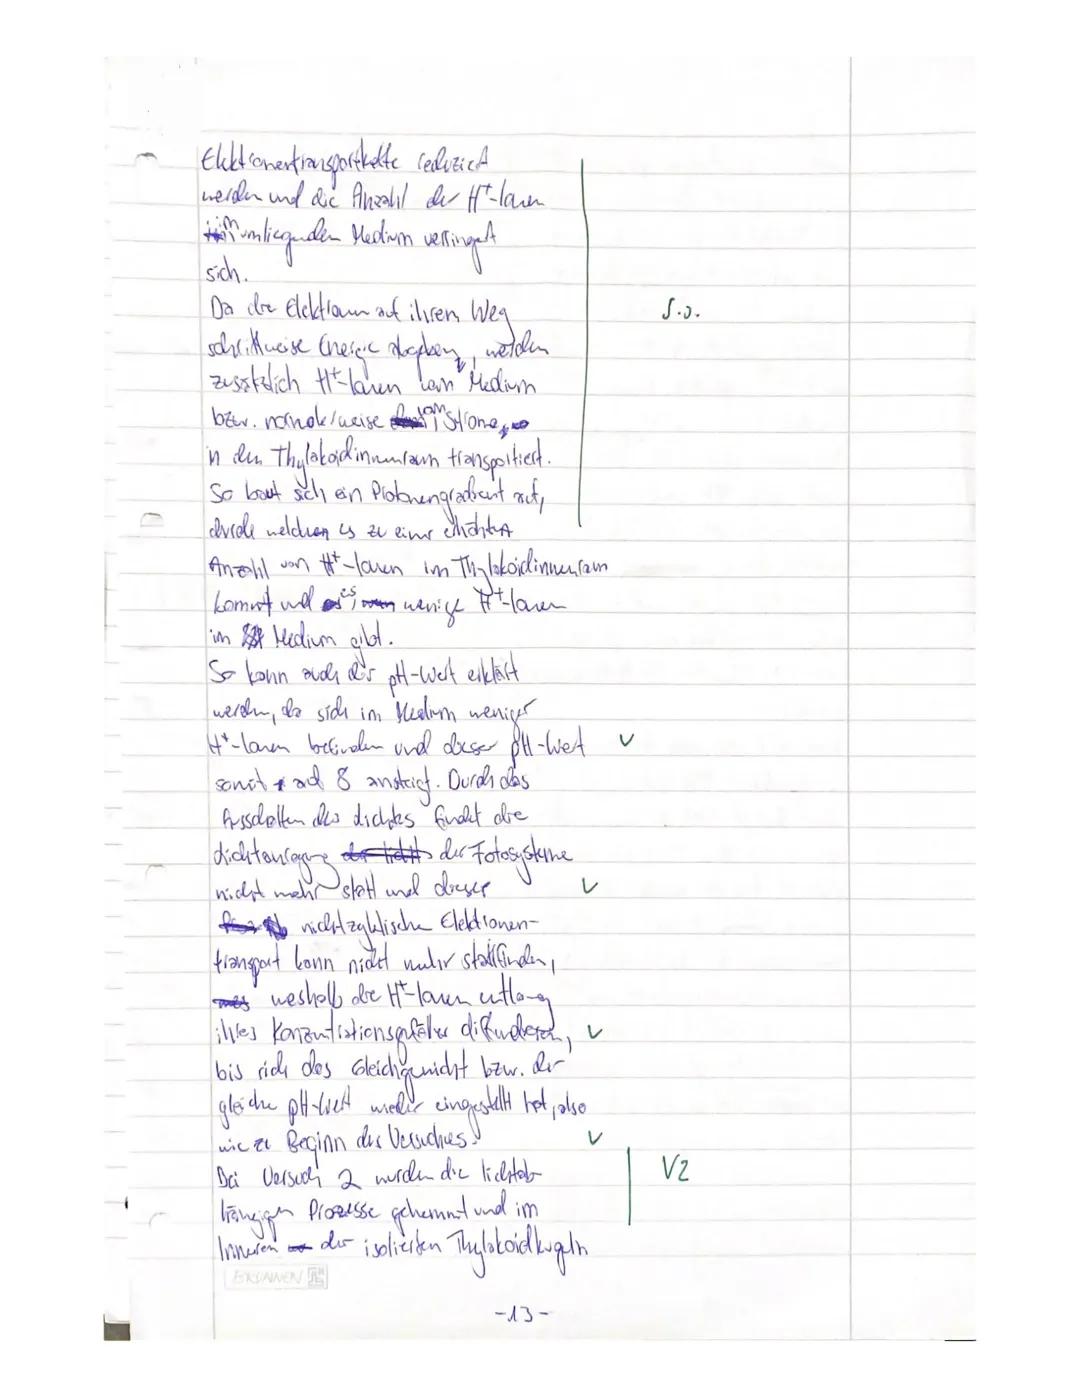 Elektronentransportkette reduziert
werden und die Anzahl der H⁺-Ionen
im umliegenden Medium verringert
sich.
Da die Elektronen auf ihrem Weg
schrittweise Energie abgeben, werden
S.O.
zusätzlich H⁺-Ionen vom Medium
bzw. normalerweise vom Stroma
in den Thylakoidinnenraum transportiert.
So baut sich ein Protonengradient auf,
durch welchen es zu einer erhöhten
Anzahl von H⁺-Ionen im Thylakoidinnenraum
kommt und es wenige H⁺-Ionen
im Medium gibt.
So kann auch der pH-Wert erklärt
werden, da sich im Medium weniger
H⁺-Ionen befinden und dieser pH-Wert ✓
somit auf 8 ansteigt. Durch das
Ausschalten des Lichtes findet die
Lichtanregung der Fotosysteme
nicht mehr statt und dieser ✓
nichtzyklische Elektronen-
transport kann nicht mehr stattfinden,
weshalb die H⁺-Ionen entlang
ihres Konzentrationsgefälles diffundieren, ✓
bis sich das Gleichgewicht bzw. der
gleiche pH-Wert wieder eingestellt hat, also
wie zu Beginn des Versuches. ✓
Bei Versuch 2 wurden die lichtab- V2
hängigen Prozesse gehemmt und im
Inneren der isolierten Thylakoidkugeln
BRUNNEN
-13-